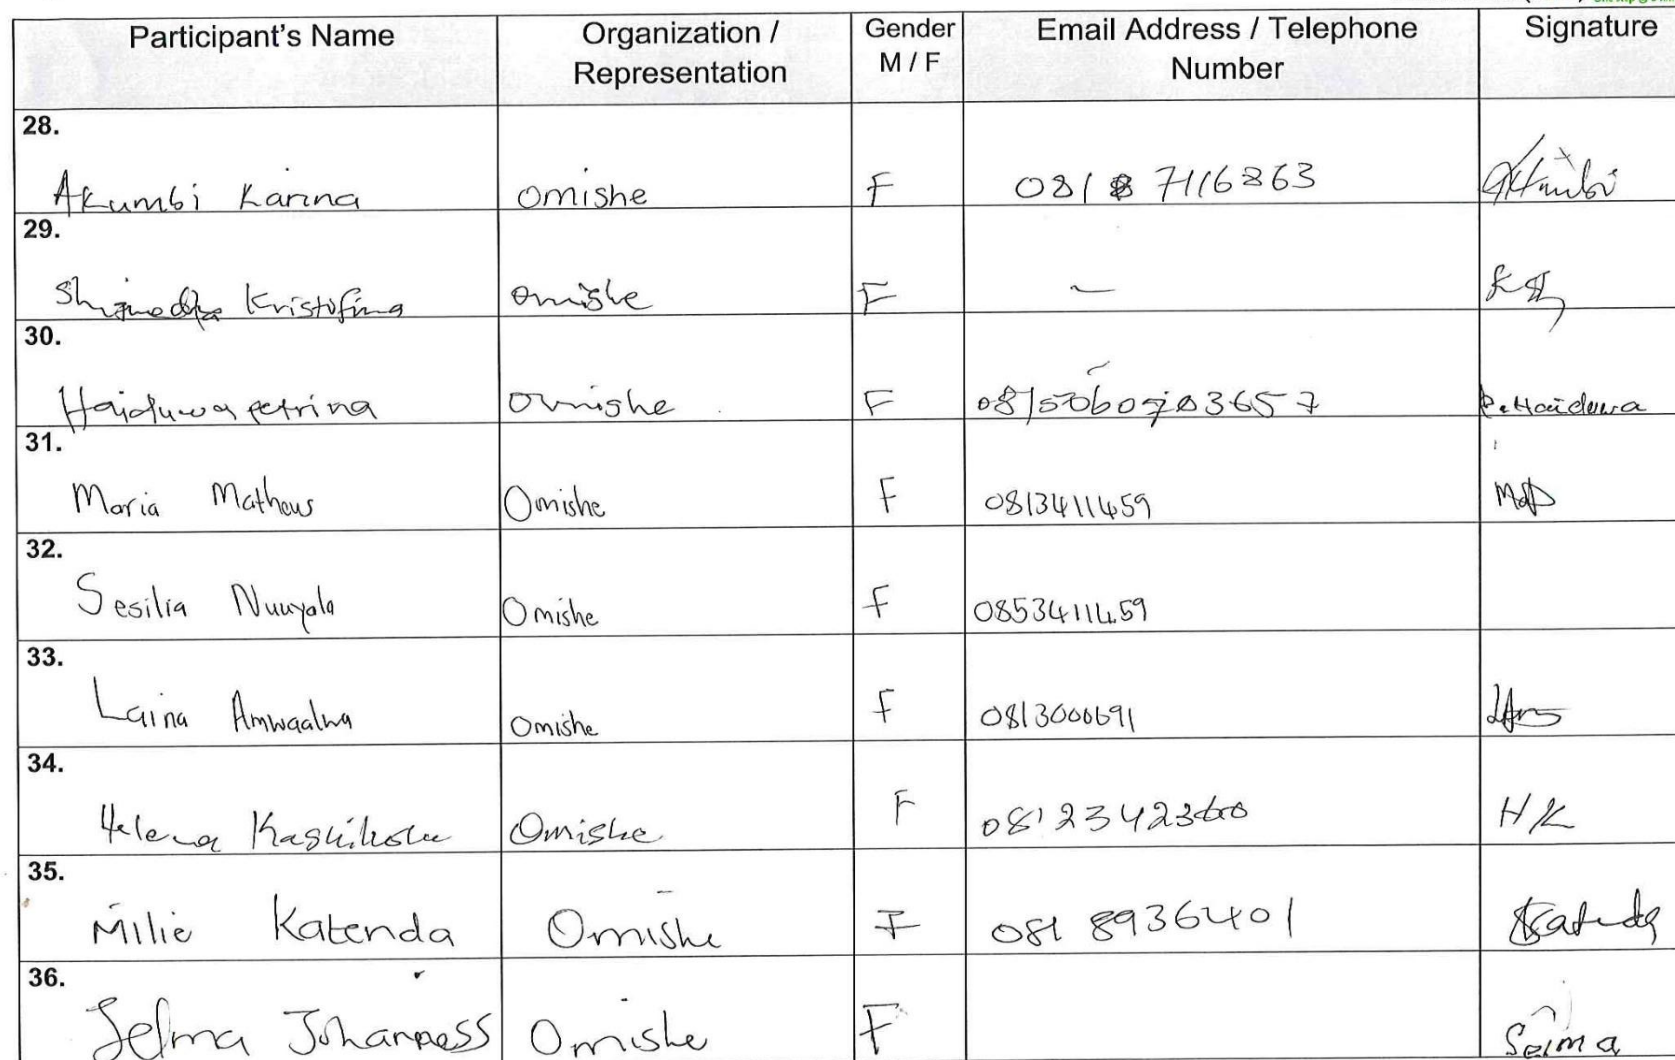 Participant's Name Organization / Representation Gender M / F Email Address / Telephone Number Signature
28.
Akumbi Karina Omishe F 081 7116863
29.
Kristofina Omishe F –
30.
Haiduwa petrina Omishe F P. Haiduwa
31.
Maria Matheus Omishe F 0813411459
32.
Sesilia Nuuyala Omishe F 0853411459
33.
Laina Amwaalwa Omishe F 0813000691
34.
Helena Omishe F HK
35.
Milie Katenda Omishe F 081 8936401 Katenda
36.
Selma Johanness Omishe F Selma